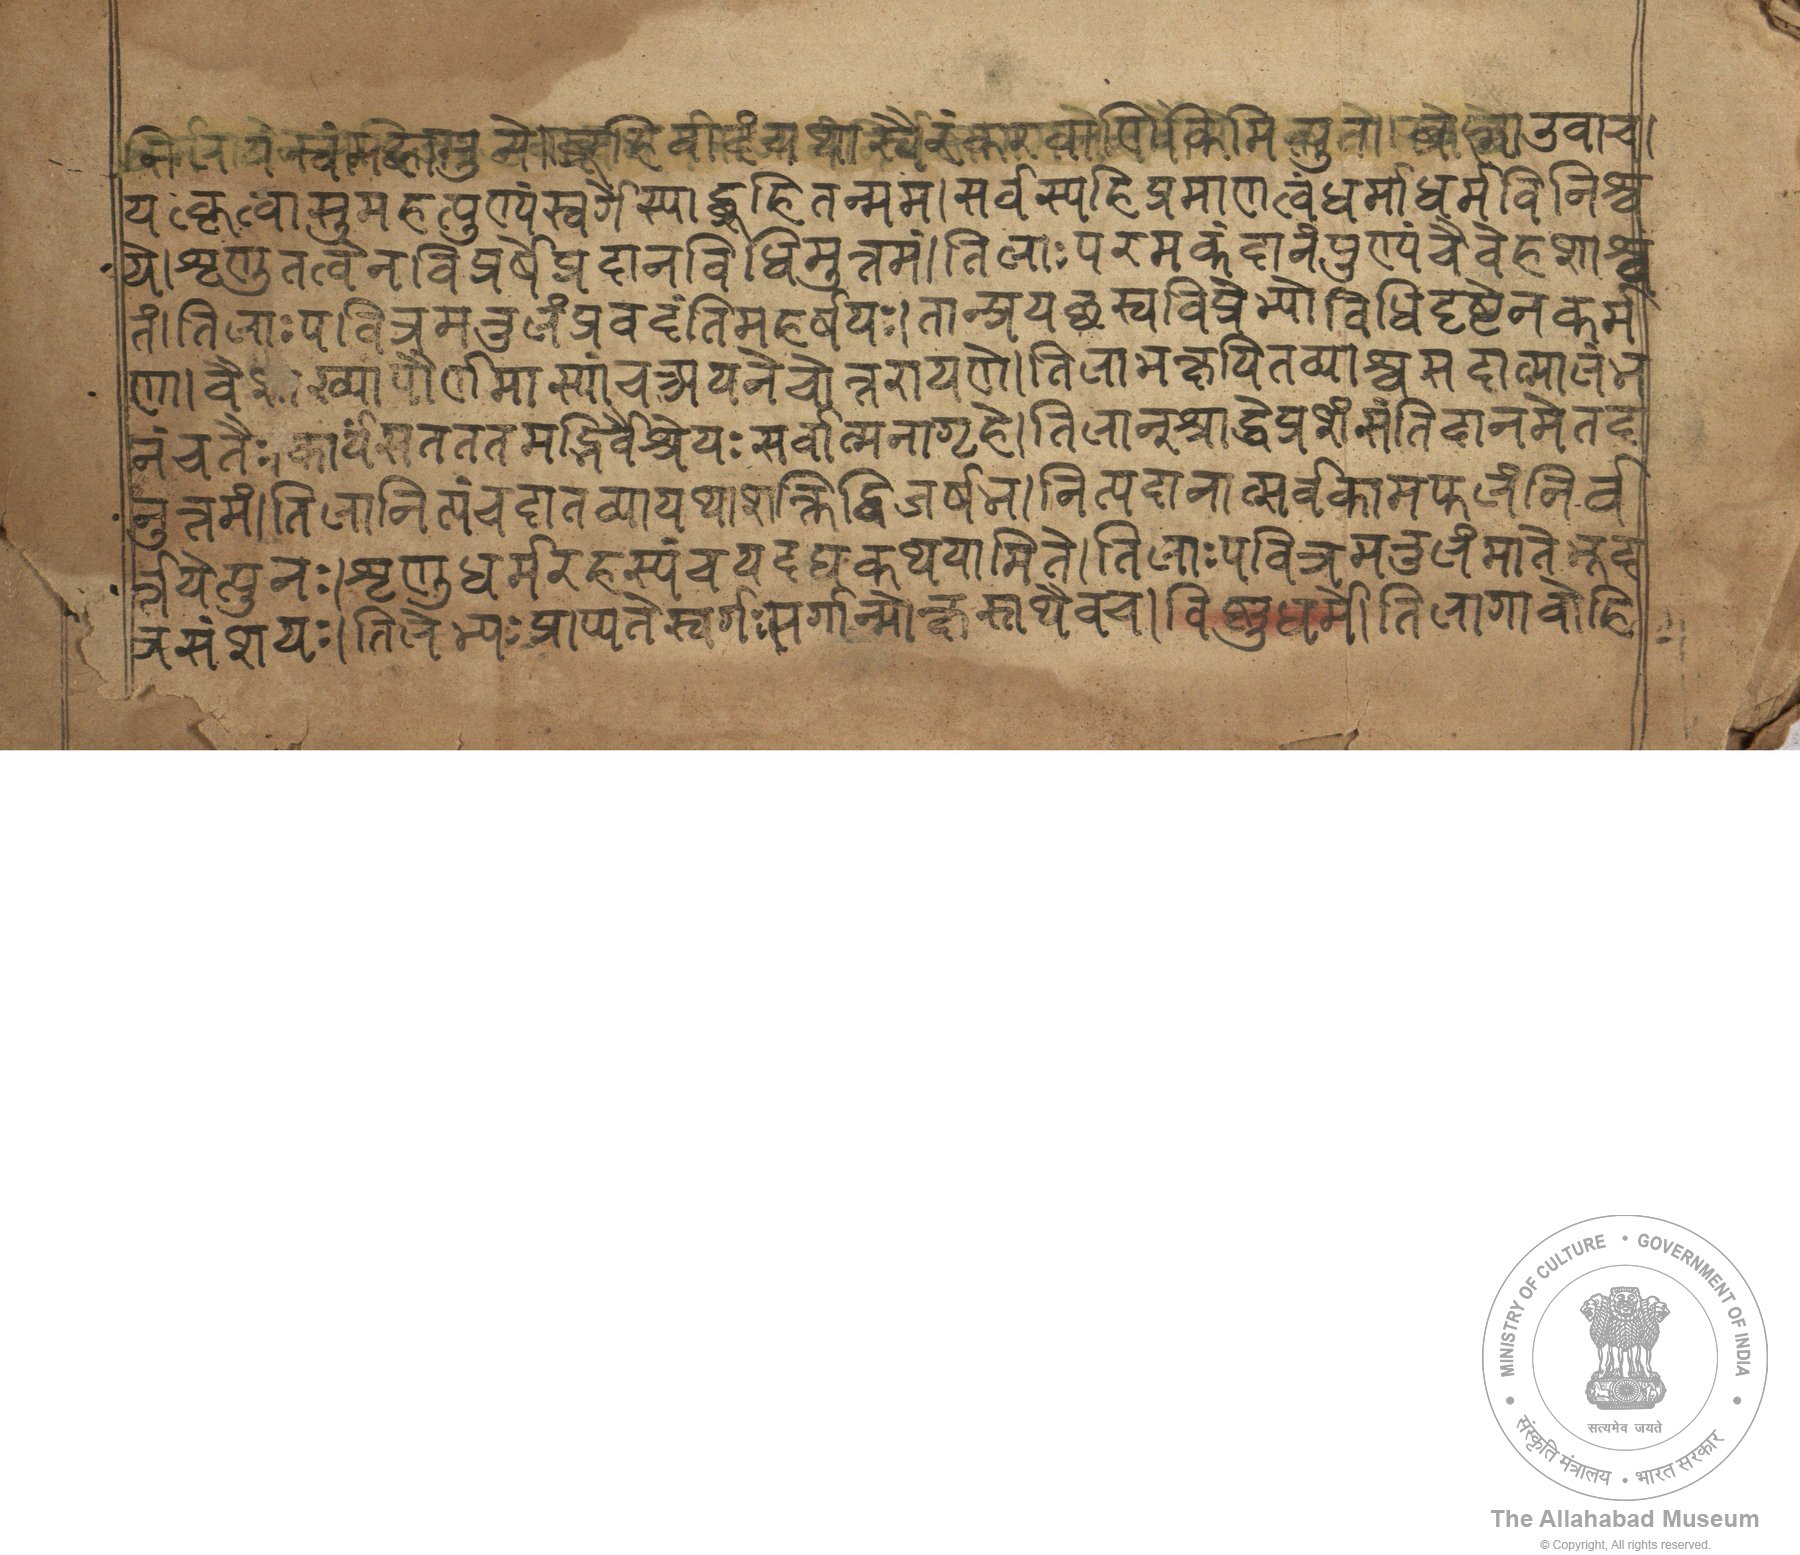 यत्कृत्वासुमहत्पुण्यंस्वर्गेस्याद्ब्रूहितन्ममं।सर्वस्यहिप्रमाणत्वंधर्माधर्मविनिश्च
ये।शृणुतत्वेनविप्रर्षेप्रदानविधिमुत्तमं।तिलाःपरमकंदानंपुण्यंचैवेहशाश्व
तं।तिलाःपवित्रमतुलंप्रवदंतिमहर्षयः।तान्प्रयछस्वविप्रेभ्योविधिदृष्टेनकर्म
णा।वै पौर्णमास्यांचअयनेचोत्तरायणे।तिलाभक्षयितव्याश्चसदात्वालंभ
नंचतैः।कार्यंसतततमद्भिर्वैश्रेयःसर्वात्मनागृहे।तिलानुश्राद्धेप्रशंसंतिदानमेतद
नुत्तमं।तिलानित्यंचदातव्यायथाशक्तिद्विजर्षभ।नित्यदानात्सर्वकामफलंनिर्व
र्त्तयेत्पुनः।शृणुधर्मरहस्यंचयदद्यकथयामिते।तिलाःपवित्रमतुलंमातेभूद
त्रसंशयः।तिलेभ्यःप्राप्यतेस्वर्गःसर्गान्मोक्षस्तथैवच।विष्णुधर्मे।तिलागावोहि
MINISTRY OF CULTURE • GOVERNMENT OF INDIA
सत्यमेव जयते
संस्कृति मंत्रालय • भारत सरकार
The Allahabad Museum
© Copyright, All rights reserved.